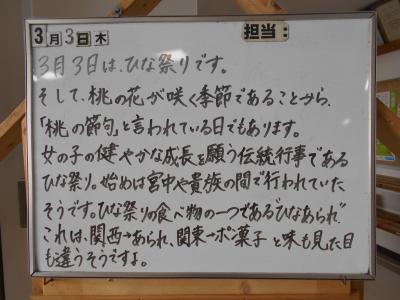 3月3日木 担当:
3月3日は、ひな祭りです。
そして、桃の花が咲く季節であることから、
「桃の節句」と言われている日でもあります。
女の子の健やかな成長を願う伝統行事である
ひな祭り。始めは宮中や貴族の間で行われていた
そうです。ひな祭りの食べ物の一つである"ひなあられ"
これは、関西→あられ、関東→ポン菓子と味も見た目
も違うそうですよ。